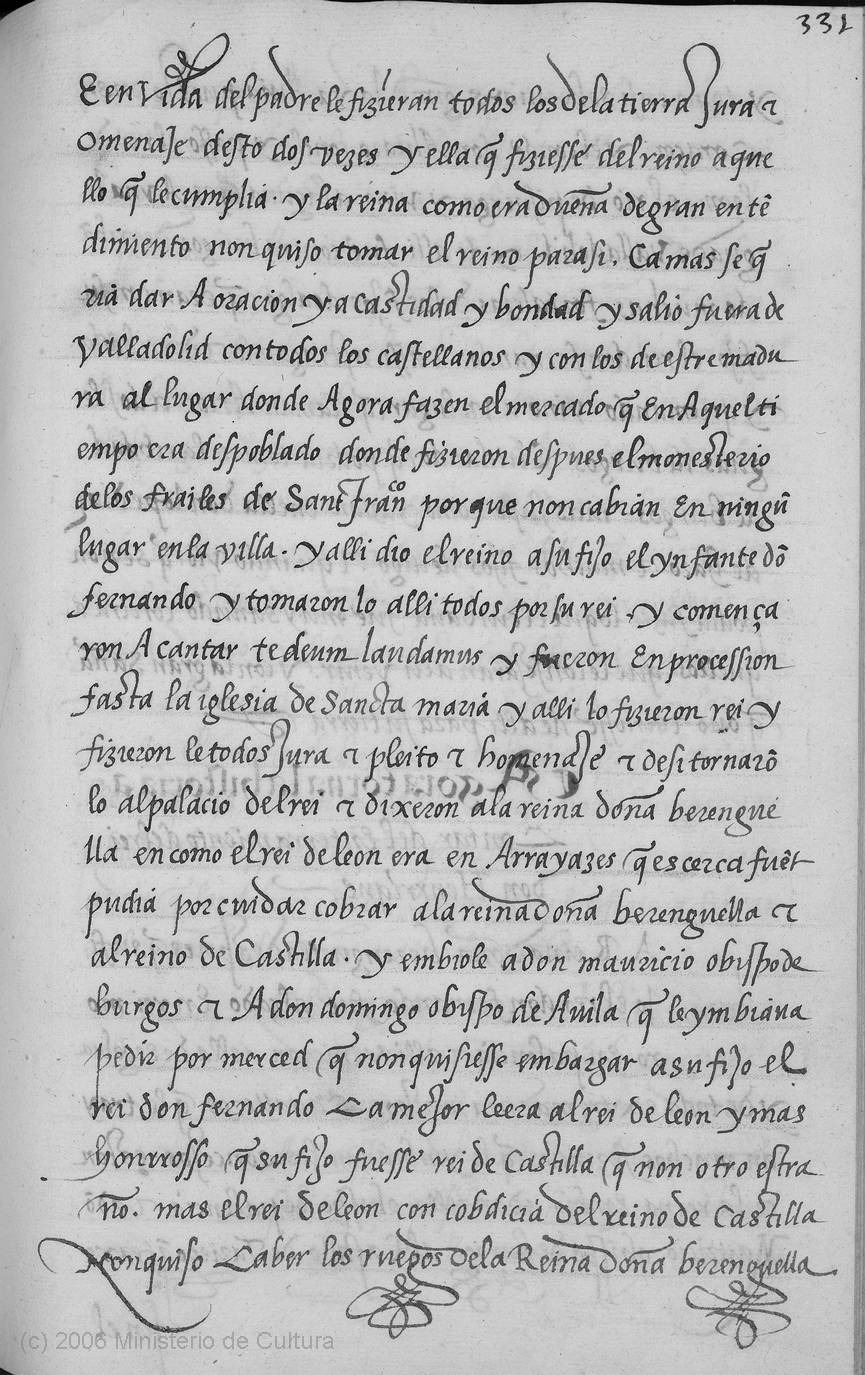 332
E en vida del padre le fizieran todos los de la tierra Jura ⁊
omenaJe desto dos vezes y ella q̃ fiziesse del reino aque
llo q̃ le cumplia. y la reina como era dueña de gran entẽ
dimiento non quiso tomar el reino para si. Ca mas se q̃
ria dar A oracion y a Castidad y bondad y salio fuera de
Valladolid con todos los castellanos y con los de estremadu
ra al lugar donde Agora fazen el mercado q̃ En Aquel ti
empo era despoblado donde fizieron despues el monesterio
de los frailes de Sant Franco porque non cabian En ningũ
lugar en la villa. y alli dio el reino a su fijo el ynfante dõ
fernando y tomaron lo alli todos por su rei y comença
ron A cantar te deum laudamus y fueron En procession
fasta la iglesia de Sancta maria y alli lo fizieron rei y
fizieron le todos Jura ⁊ pleito ⁊ homenaJe ⁊ desi tornarõ
lo al palacio del rei ⁊ dixeron a la reina doña berengue
lla en como el rei de leon era en Arrayazes q̃ es cerca fuẽt
pudia por cuidar cobrar a la reina doña berenguella ⁊
al reino de Castilla. y embiole a don mauricio obispo de
burgos ⁊ A don domingo obispo de Avila q̃ le ymbiava
pedir por merced q̃ non quisiesse embargar a su fijo el
rei don fernando Ca meJor le era al rei de leon y mas
honrrosso q̃ su fijo fuesse rei de Castilla q̃ non otro estra
ño. mas el rei de leon con cobdicia del reino de Castilla
Non quiso Caber los ruegos de la Reina doña berenguella
(c) 2006 Ministerio de Cultura